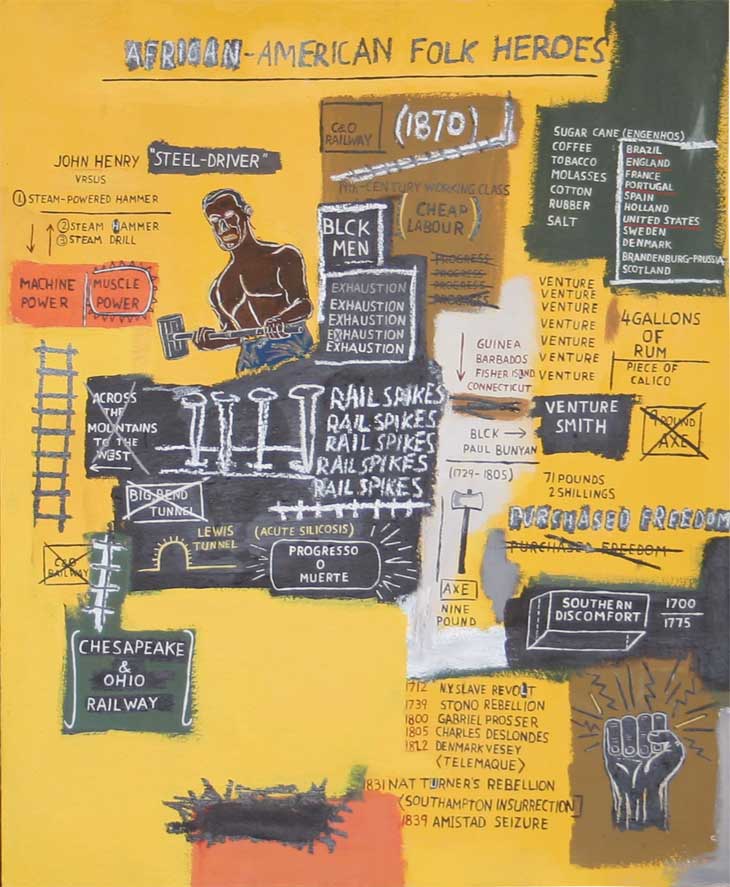 AFRICAN-AMERICAN FOLK HEROES
C&O
RAILWAY
(1870)
JOHN HENRY "STEEL-DRIVER"
VRSUS
① STEAM-POWERED HAMMER
② STEAM HAMMER
③ STEAM DRILL
MACHINE
POWER
MUSCLE
POWER
19TH-CENTURY WORKING CLASS
(CHEAP
LABOUR)
BLCK
MEN
PROGRESS
PROGRESS
PROGRESS
PROGRESS
EXHAUSTION
EXHAUSTION
EXHAUSTION
EXHAUSTION
EXHAUSTION
SUGAR CANE (ENGENHOS)
COFFEE
TOBACCO
MOLASSES
COTTON
RUBBER
SALT
BRAZIL
ENGLAND
FRANCE
PORTUGAL
SPAIN
HOLLAND
UNITED STATES
SWEDEN
DENMARK
BRANDENBURG-PRUSSIA
SCOTLAND
VENTURE
VENTURE
VENTURE
VENTURE
VENTURE
VENTURE
VENTURE
4 GALLONS
OF
RUM
PIECE OF
CALICO
GUINEA
BARBADOS
FISHER ISLAND
CONNECTICUT
VENTURE
SMITH
9 POUND
AXE
BLCK →
PAUL BUNYAN
(1729-1805)
71 POUNDS
2 SHILLINGS
PURCHASED FREEDOM
PURCHASED FREEDOM
AXE
NINE
POUND
ACROSS
THE
MOUNTAINS
TO THE
WEST
RAIL SPIKES
RAIL SPIKES
RAIL SPIKES
RAIL SPIKES
RAIL SPIKES
BIG BEND
TUNNEL
LEWIS
TUNNEL
(ACUTE SILICOSIS)
PROGRESSO
O
MUERTE
C&O
RAILWAY
CHESAPEAKE
&
OHIO
RAILWAY
SOUTHERN
DISCOMFORT
1700
1775
1712 N.Y. SLAVE REVOLT
1739 STONO REBELLION
1800 GABRIEL PROSSER
1805 CHARLES DESLONDES
1822 DENMARK VESEY
(TELEMAQUE)
1831 NAT TURNER'S REBELLION
(SOUTHAMPTON INSURRECTION)
1839 AMISTAD SEIZURE